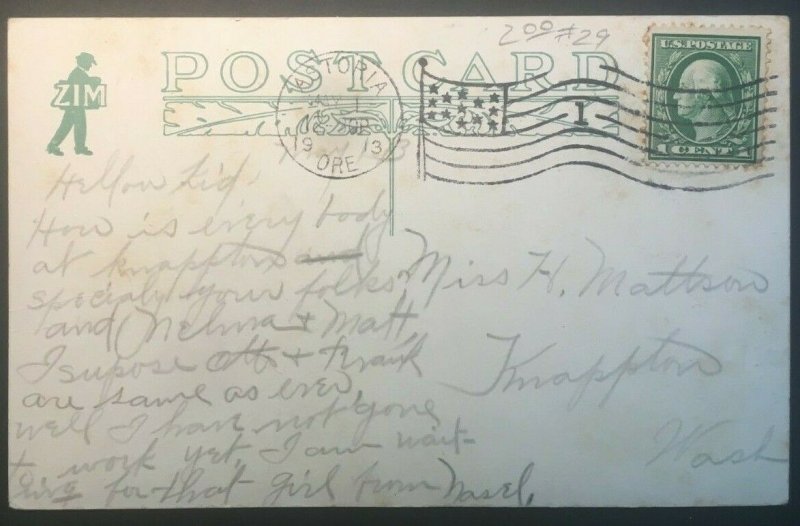 2 00 #29
ZIM
POST CARD
ASTORIA
1913
ORE
1
U.S. POSTAGE
1 CENT 1
Hellow Kid.
How is every body
at Knappton and
specialy your folks
and Nelma & Matt
I supose Ott & Frank
are same as ever,
well I have not gone
to work yet, I am wait-
ing for that girl from Nasel,
Miss H. Mattson
Knappton
Wash